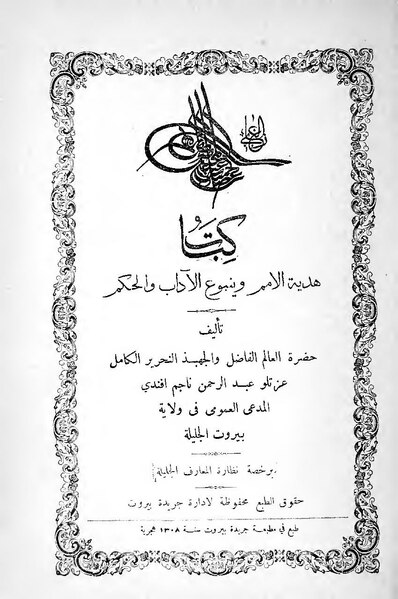 كتاب
هدية الامم وينبوع الآداب والحكم
تأليف
حضرة العالم الفاضل والجهبذ التحرير الكامل
عزتلو عبد الرحمن ناجم افندي
المدعى العمومى فى ولاية
بيروت الجليلة
برخصة نظارة المعارف الجليلة
حقوق الطبع محفوظة لادارة جريدة بيروت
طبع في مطبعة جريدة بيروت سنة ١٣٠٨ هجرية